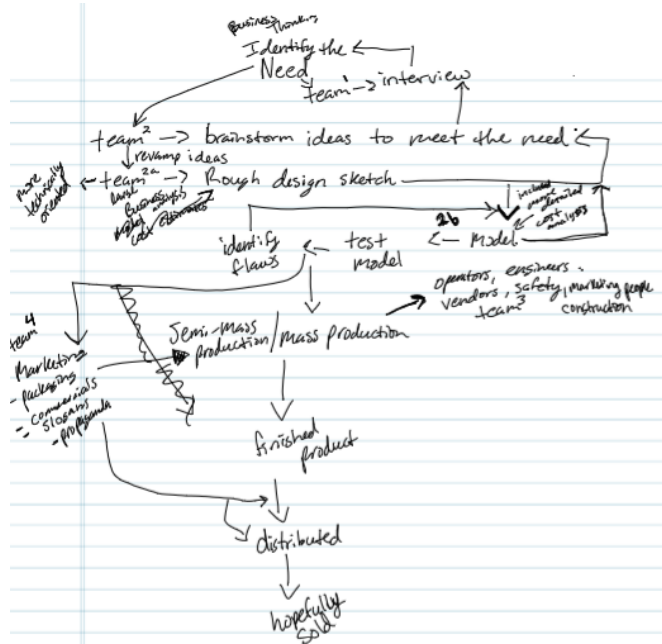 Business Thinking
Identify the
Need
team¹ → interview
team² → brainstorm ideas to meet the need
revamp ideas
more
technically
oriented
team²ᵃ → Rough design sketch
Business
analysis
cost estimates
included
more
detailed
cost
analysis
2b
identify
flaws
test
model
model
operators, engineers
vendors, safety, marketing people
team³
construction
team⁴
Marketing
- packaging
- commercials
- slogans
- propaganda
Semi-mass
production/mass production
finished
product
distributed
hopefully
sold